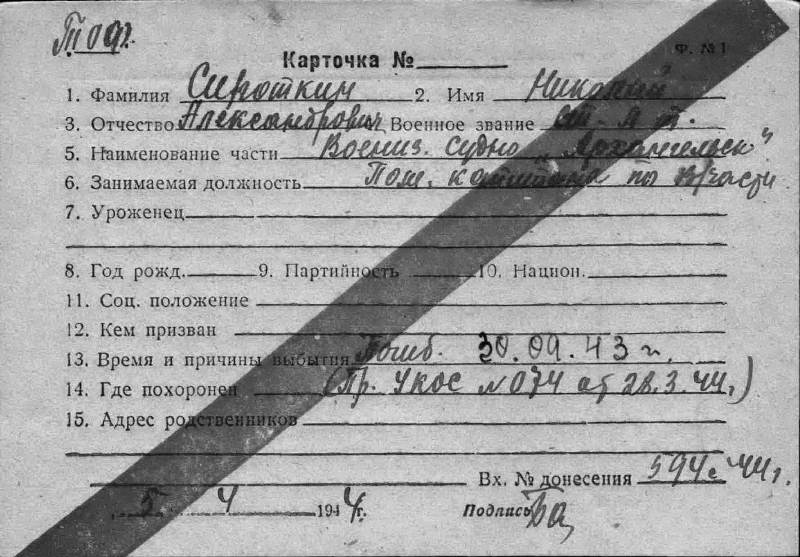 ТОФ.
Карточка №
Ф. №1
1. Фамилия Сироткин 2. Имя Николай
3. Отчество Александрович Военное звание ст. л-т.
5. Наименование части Воениз. судно „Архангельск"
6. Занимаемая должность Пом. капитана по в/части
7. Уроженец
8. Год рожд. 9. Партийность 10. Национ.
11. Соц. положение
12. Кем призван
13. Время и причины выбытия Погиб. 30.09.43 г.
14. Где похоронен (Пр. УКОС № 074 от 28.3.44г.)
15. Адрес родственников
Вх. № донесения 594с 44г.
5 4 1944г.
Подпись